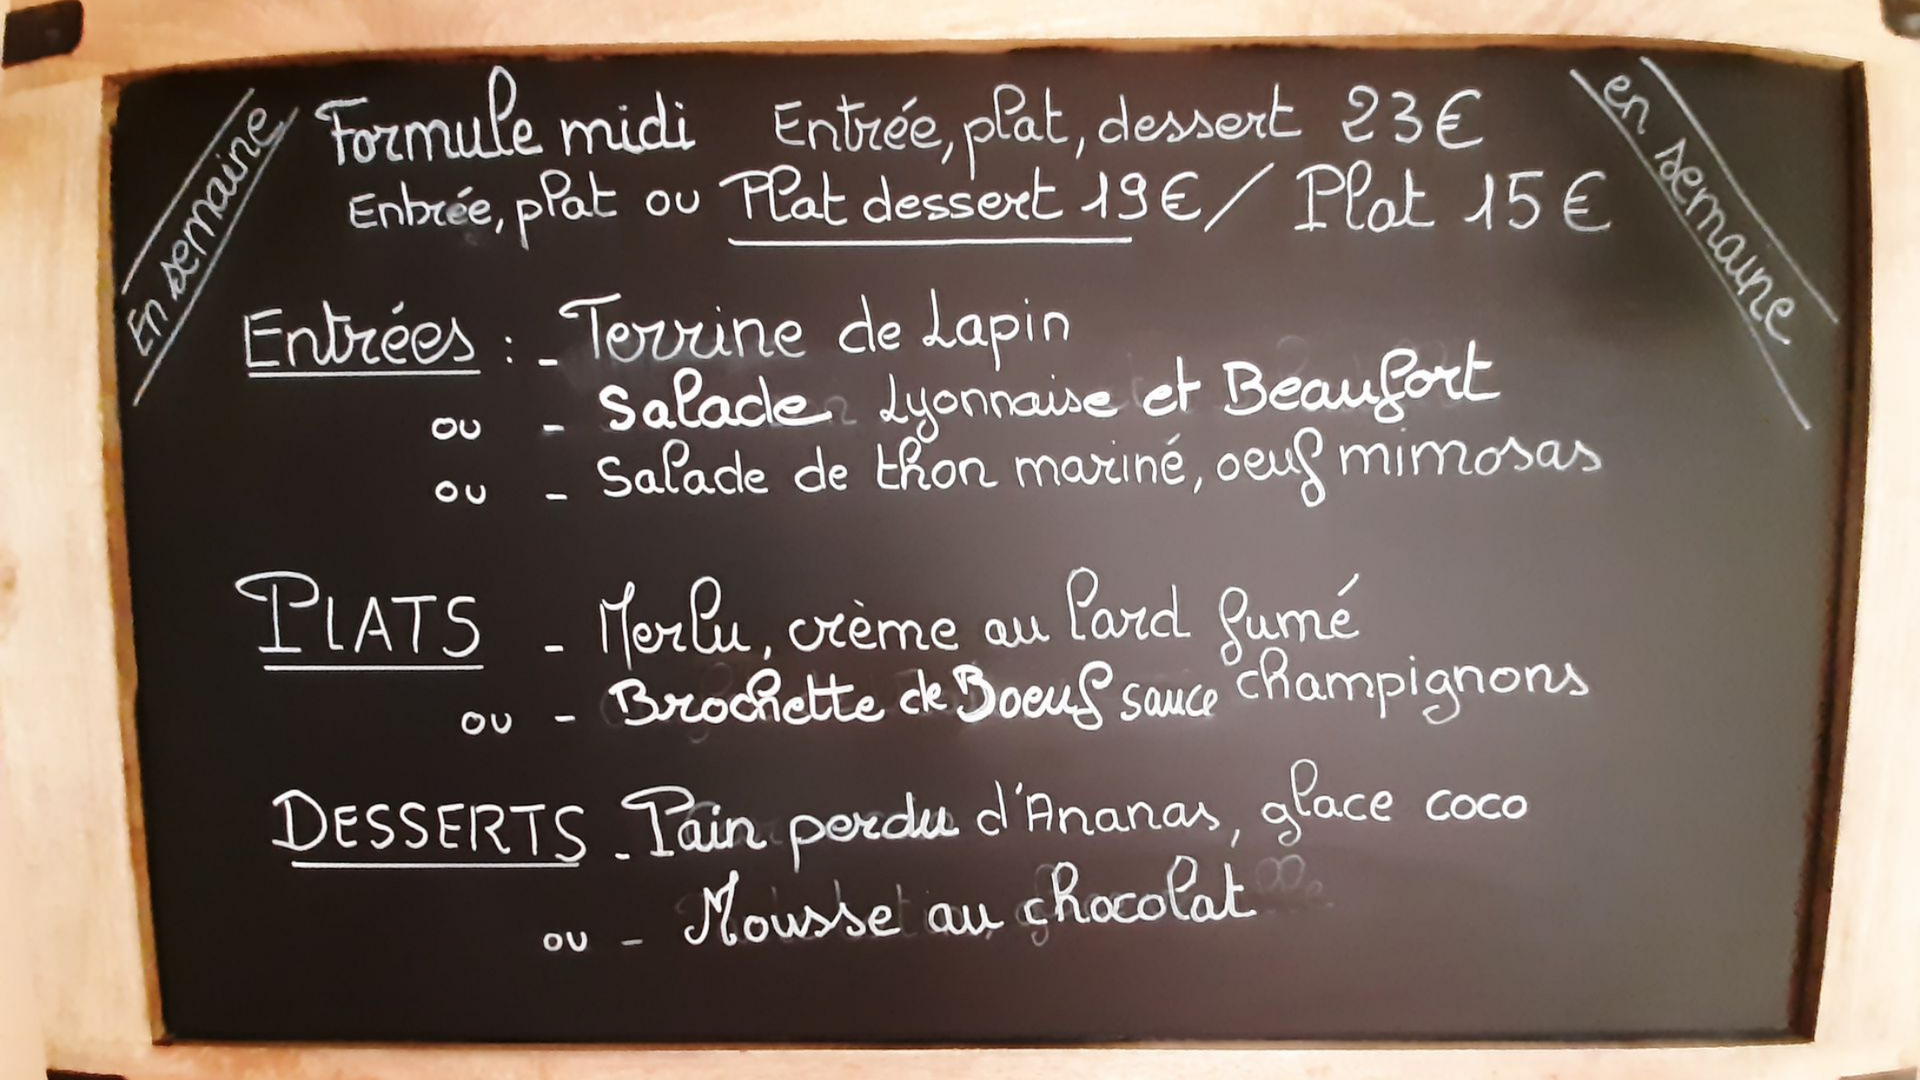 En semaine
en semaine
Formule midi Entrée, plat, dessert 23€
Entrée, plat ou Plat dessert 19€ / Plat 15€
Entrées : - Terrine de Lapin
ou - Salade Lyonnaise et Beaufort
ou - Salade de thon mariné, oeuf mimosas
PLATS - Merlu, crème au lard fumé
ou - Brochette de Boeuf sauce champignons
DESSERTS - Pain perdu d'Ananas, glace coco
ou - Mousse au chocolat